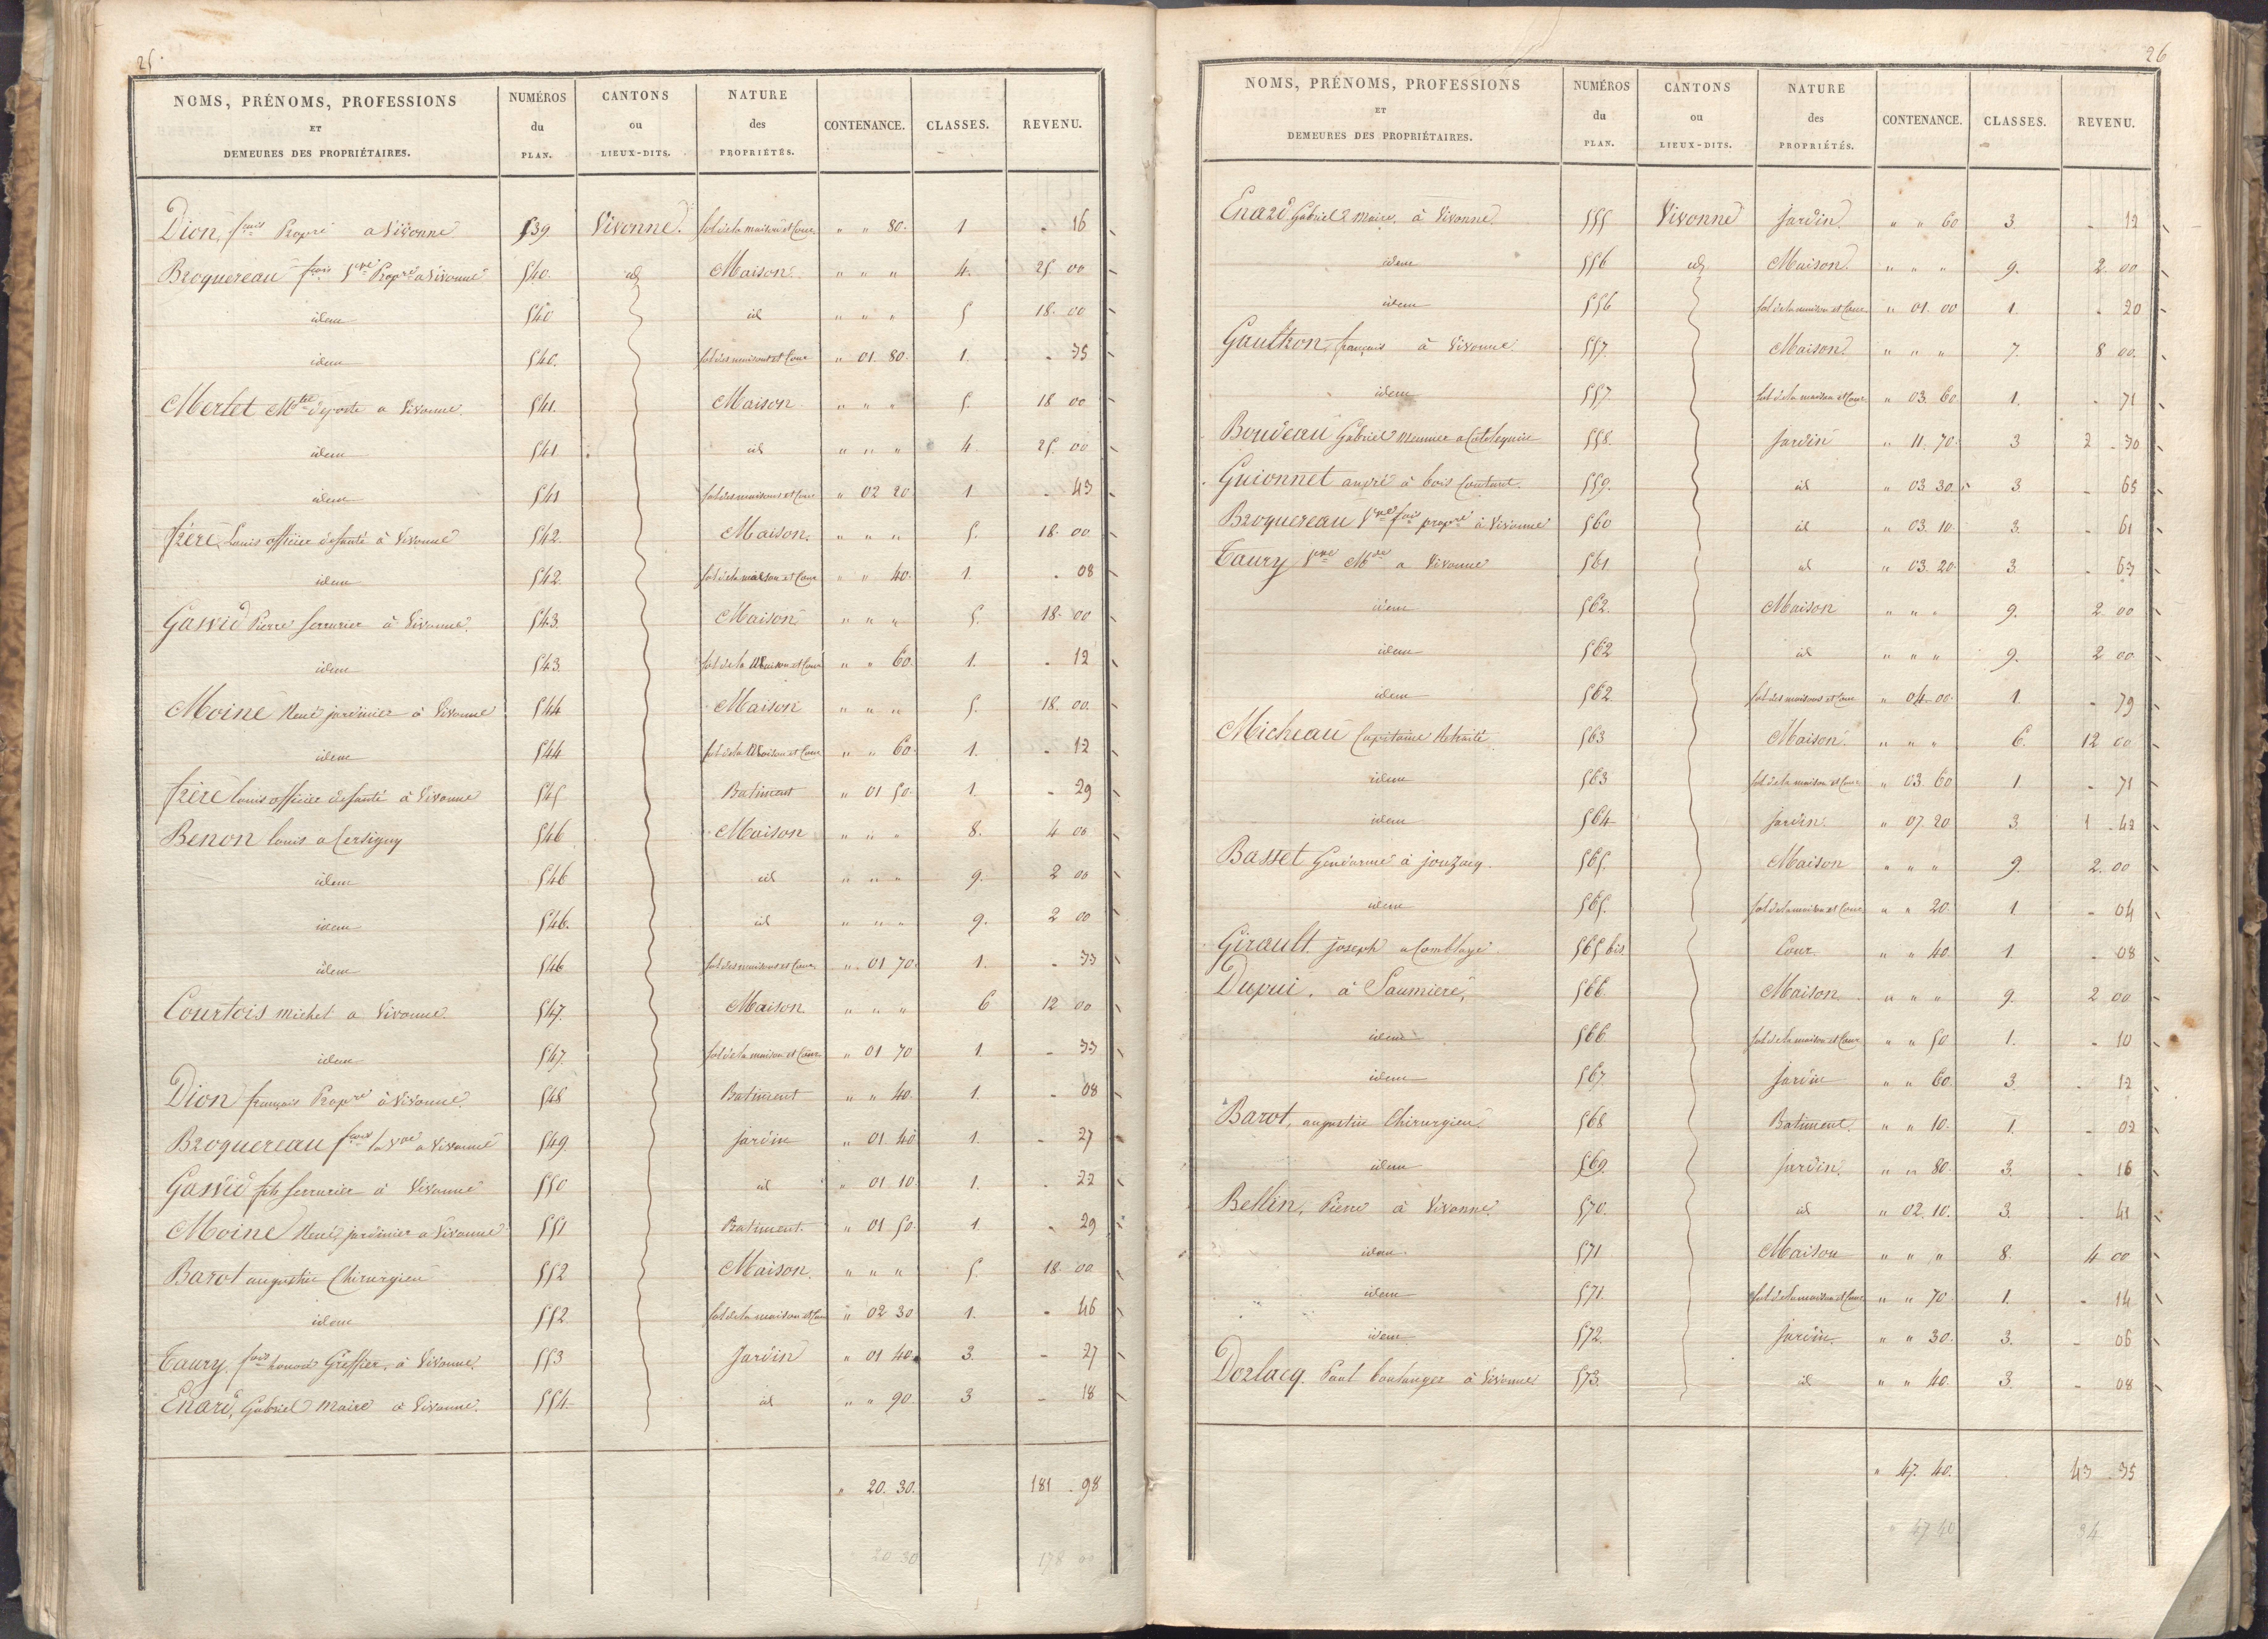 25.
NOMS, PRÉNOMS, PROFESSIONS ET DEMEURES DES PROPRIÉTAIRES. NUMÉROS du PLAN. CANTONS ou LIEUX-DITS. NATURE des PROPRIÉTÉS. CONTENANCE. CLASSES. REVENU.
Dion, fcois Propre a Vivonne 539 Vivonne. sol de la maison et Cour " " 80. 1 - 16
Broquereau fcois Vve Propre a Vivonne 540. id Maison " " " 4. 25 00
idem 540 id " " " 5 18. 00
idem 540. sol des maisons et Cour " 01 80. 1. - 35
Mertet Mtre de poste a Vivonne 541. Maison " " " 5. 18 00
idem 541 id " " " 4. 25. 00
idem 541 sol des maisons et Cour " 02 20 1 - 43
frère, Louis officier de santé à Vivonne 542. Maison. " " " 5. 18. 00
idem 542. sol de la maison et Cour " " 40. 1. - 08
Gassid Pierre Serrurier à Vivonne. 543. Maison. " " " 5. 18. 00
idem 543 sol de la Maison et Cour " " 60. 1. - 12
Moine René jardinier à Vivonne 544 Maison " " " 5. 18. 00.
idem 544 sol de la Maison et Cour " " 60. 1. - 12
frère louis officier de santé à Vivonne 545 Batiment " 01 50. 1. - 29
Benon louis a Cersigny 546 Maison " " " 8. 4 00
idem 546 id " " " 9. 2 00
idem 546. id " " " 9. 2 00
idem 546 sol des maisons et Cour " 01 70. 1. - 33
Courtois michel a Vivonne. 547. Maison. " " " 6 12 00
idem 547. sol de la maison et Cour " 01 70 1. - 33
Dion françois Propre à Vivonne. 548 Batiment " " 40. 1. - 08
Broquereau fcois la Vve a Vivonne 549. jardin " 01 40 1. - 27
Gassid fils Serrurier à Vivonne 550 id " 01 10. 1. - 22
Moine René, jardinier a Vivonne 551 Batiment. " 01 50. 1. - 29
Barot augustin Chirurgien 552 Maison. " " " 5. 18. 00
idem 552 sol de la maison et Cour " 02 30 1. - 46
Taury, fcois honoré Greffier, à Vivonne. 553 Jardin " 01 40. 3. - 27
Enard, Gabriel Maire à Vivonne. 554. id " " 90. 3 - 18
" 20. 30. 181 . 98
20 30 178 00
26
NOMS, PRÉNOMS, PROFESSIONS ET DEMEURES DES PROPRIÉTAIRES. NUMÉROS du PLAN. CANTONS ou LIEUX-DITS. NATURE des PROPRIÉTÉS. CONTENANCE. CLASSES. REVENU.
Enard Gabriel Maire à Vivonne 555 Vivonne jardin. " " 60 3 - 12
idem 556 id Maison. " " " 9. 2. 00
idem 556 sol de la maison et Cour " 01. 00 1. - 20
Gaultron, françois à Vivonne 557. Maison. " " " 7. 8 00.
idem 557 sol de la maison et Cour " 03. 60 1. - 71
Boudeau Gabriel meunier a 558. Jardin " 11. 70. 3 2 - 30
Guionnet andré à bois Coutant. 559. id " 03 30. 3 - 65
Broquereau Vve fcois propre à Vivonne 560 id " 03. 10. 3. - 61
Taury Vve Mde a Vivonne 561 id " 03. 20. 3. - 63
idem 562. Maison " " " 9. 2 00
idem 562 id " " " 9. 2 00
idem 562. sol des maisons et Cour " 04. 00. 1. - 79
Micheau Capitaine Retraité 563 Maison. " " " 6. 12 00
idem 563 sol de la maison et Cour " 03 60 1 - 71
idem 564 jardin. " 07. 20 3. 1 - 42
Basset Gendarme à jonzacq. 565. Maison " " " 9. 2. 00
idem 565. sol de la maison et Cour " " 20. 1. - 04
Girault joseph a Comblaye. 565 bis Cour. " " 40. 1. - 08
Dupui. à Saumiere, 566 Maison. " " " 9. 2 00
idem 566 sol de la maison et Cour " " 50 1. - 10
idem 567 jardin " " 60. 3. - 12
Barot, augustin Chirurgien 568 Batiment. " " 10. 1. - 02
idem 569. jardin. " " 80. 3. - 16
Bellin, Pierre à Vivonne. 570. id " 02. 10. 3. - 41
idem 571 Maison " " " 8. 4 00
idem 571. sol de la maison et Cour " " 70. 1. - 14
idem 572. jardin. " " 30. 3. - 06
Dorlacq. Paul boulanger à Vivonne 573 id " " 40. 3. - 08
" 47. 40. 43 . 35
47 40 34